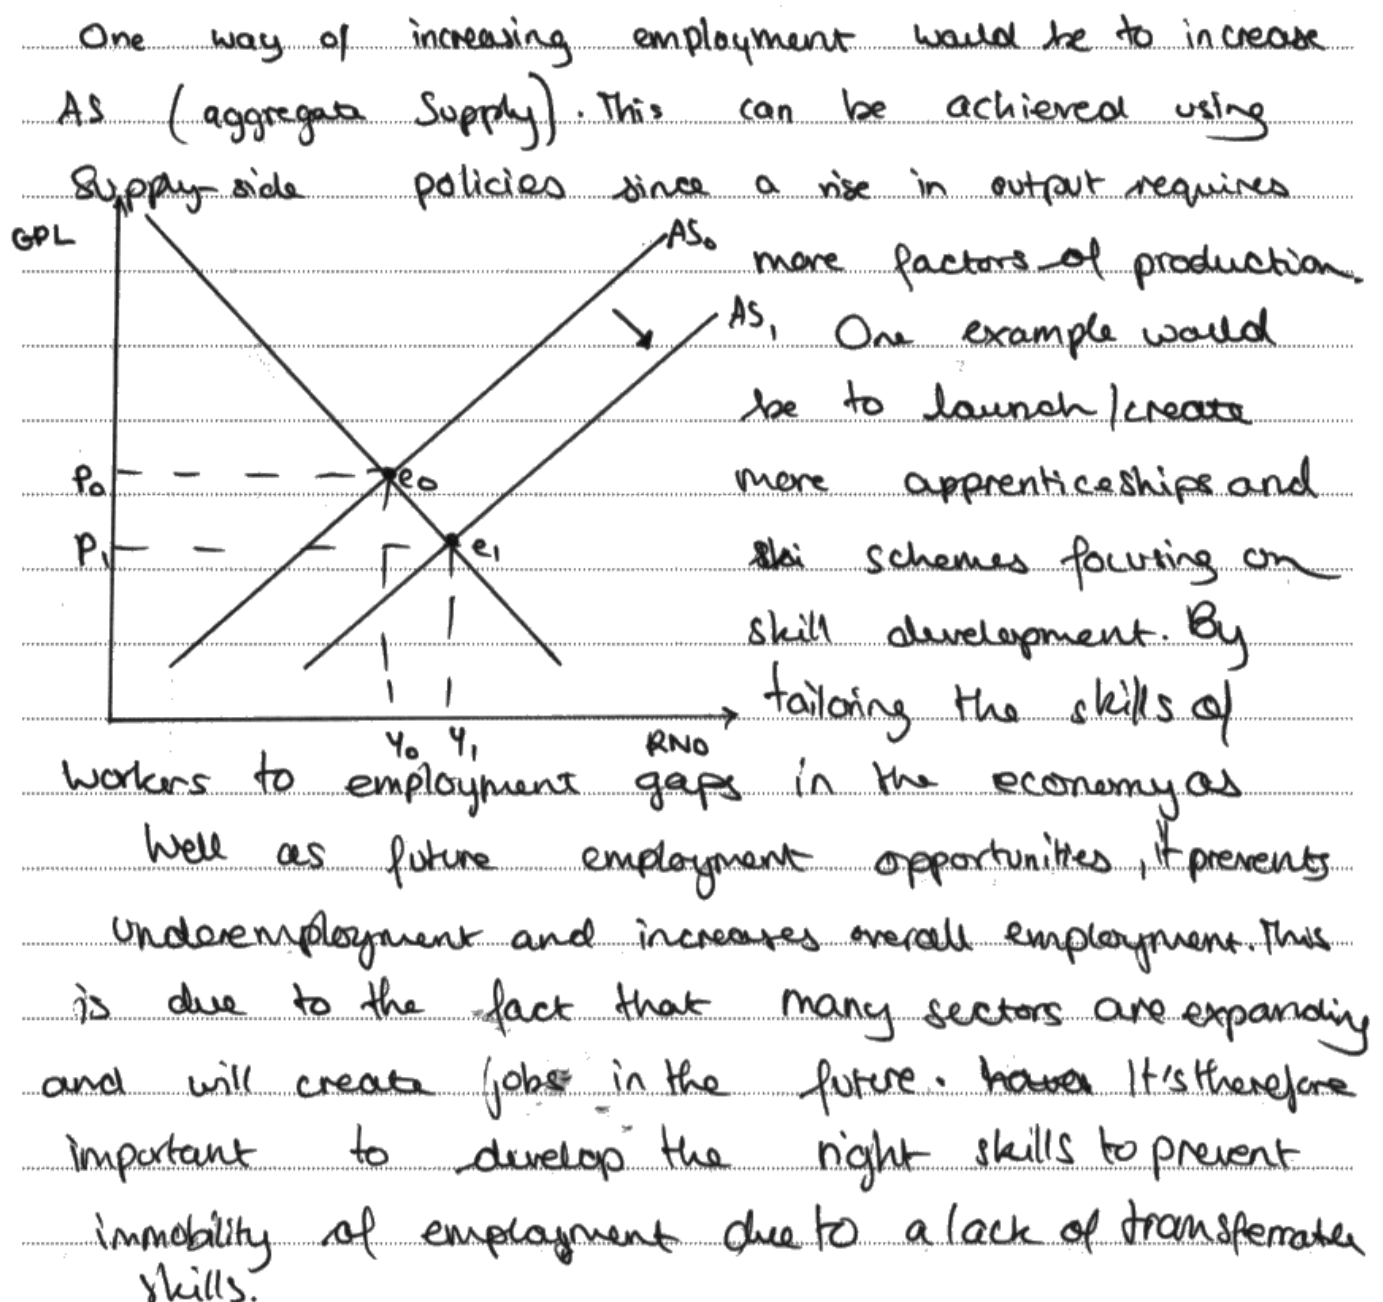 One way of increasing employment would be to increase
AS (aggregate Supply). This can be achieved using
Supply-side policies since a rise in output requires
GPL
AS₀
more factors of production.
AS₁
One example would
be to launch/create
P₀
e₀
more apprenticeships and
P₁
e₁
schemes focusing on
skill development. By
tailoring the skills of
Y₀ Y₁ RNO
workers to employment gaps in the economy as
well as future employment opportunities, it prevents
underemployment and increases overall employment. This
is due to the fact that many sectors are expanding
and will create jobs in the future. It's therefore
important to develop the right skills to prevent
immobility of employment due to a lack of
skills.